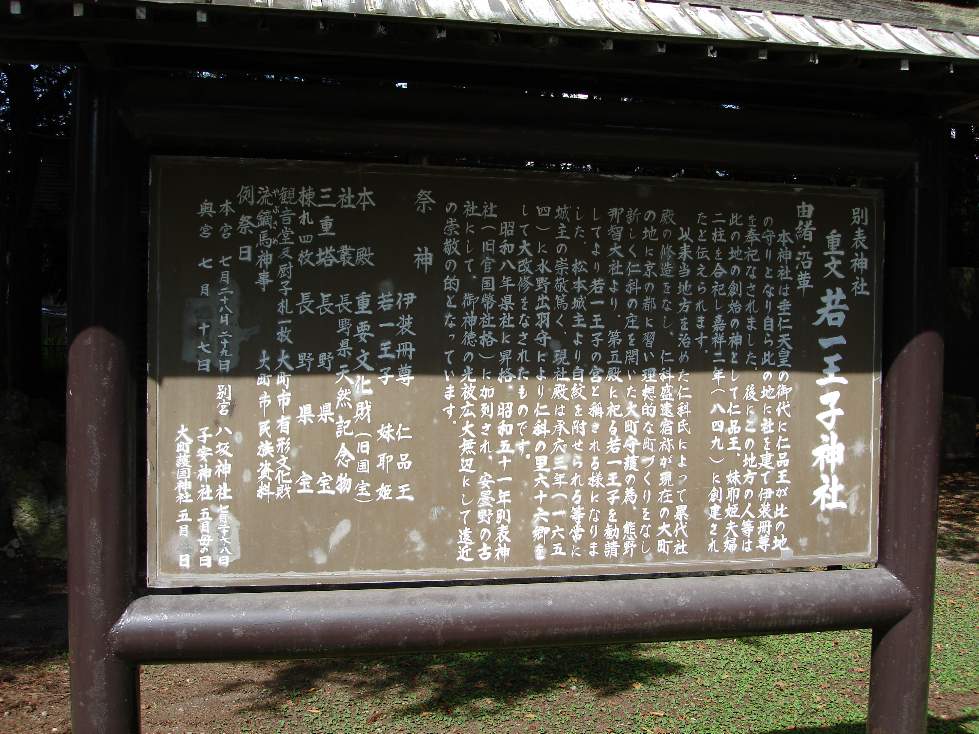 別表神社
重文 若一王子神社
由緒・沿革
本神社は垂仁天皇の御代に仁品王が此の地
の守りとなり自ら此の地に社を建て伊弉冊尊
を奉祀なされました。後にこの地方の人等は
此の地の創始の神として仁品王、妹耶姫夫婦
二柱を合祀、嘉祥二年(八四九)に創建され
たと伝えられます。
以来当地方を治めた仁科氏によって累代社
殿の修造をなし、仁科盛遠宿祢が現在の大町
の地に京の都に習い理想的な町づくりをなし
新しく仁科の庄を開いた大町守護の為、熊野
那智大社より、第五殿に祀る若一王子を勧請
してより若一王子の宮と称される様になりま
した。松本城主より自紋を附せられる等常に
城主の崇敬篤く、現社殿は承応三年(一六五
四)に水野出羽守により仁科の里六十六郷を
して大改修をなされたものです。
昭和八年県社に昇格。昭和五十一年別表神
社(旧官国幣社格)に加列され、安曇野の古
社にして、御神徳の光被広大無辺にして遠近
の崇敬の的となっています。
祭神
伊弉冊尊 仁品王
若一王子 妹耶姫
本殿 重要文化財(旧国宝)
社叢 長野県天然記念物
三重塔 長野県宝
棟札四枚 長野県宝
観音堂及厨子札一枚 大町市有形文化財
流鏑馬神事 大町市民俗資料
例祭日
本宮 七月二十八月二十九日
奥宮 七月 十七日
別宮 八坂神社
子安神社 五月
大町護国神社 五月 日